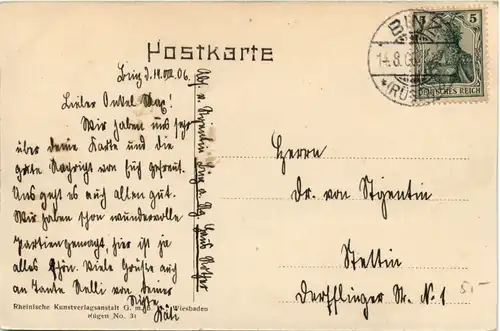 Postkarte
BINZ
14.8.06
*(RÜ
5
DEUTSCHES REICH
Binz d. 14.VIII.06.
Lieber Onkel Max!
Wir haben uns sehr
über deine Karte und die
gute Nachricht von Euch gefreut.
Uns geht es auch allen gut.
Wir haben schon wundervolle
Partien gemacht, hier ist ja
alles schön. Viele Grüße auch
an Tante Nelli von Deiner
Nichte
Käti
Abs. v. Stigentin Binz a. Rg. Haus
Herrn
Dr. von Stigentin
Stettin
Derfflinger Str. N. 1
51-
Rheinische Kunstverlagsanstalt G. m. b. H. Wiesbaden
Rügen No. 31